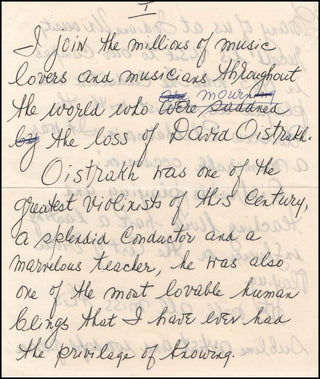 I
I join the millions of music
lovers and musicians throughout
are mourning
the world who were saddned
by the loss of David Oistrakh.
Oistrakh was one of the
greatest violinists of this century,
a splendid conductor and a
marvelous teacher, he was also
one of the most lovable human
beings that I have ever had
the privilage of knowing.